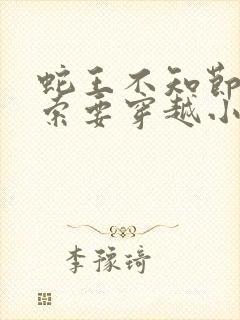 蛇王不知节
索要穿越小
李豫琦